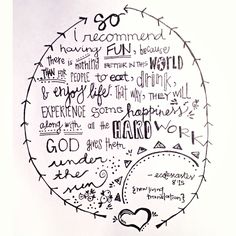 so
I recommend
having FUN, because
there is nothing BETTER IN THIS WORLD
THAN FOR PEOPLE to eat, drink,
& enjoy life. That way, THEY WILL
EXPERIENCE some happiness
along with all the HARD WORK
GOD gives them
under
the
sun.
- ecclesiastes
8:15
{new living
translation}